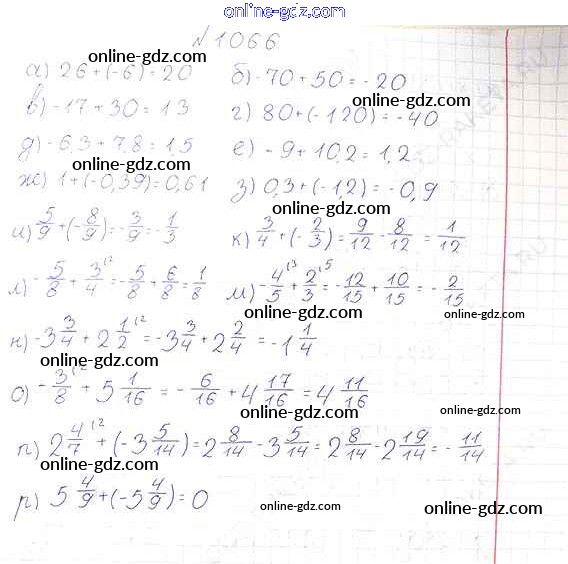 online-gdz.com
№ 1066
online-gdz.com online-gdz.com
а) 26 + (-6) = 20 б) -70 + 50 = -20
online-gdz.com
в) -17 + 30 = 13 г) 80 + (-120) = -40
online-gdz.com
д) -6,3 + 7,8 = 1,5 е) -9 + 10,2 = 1,2
online-gdz.com online-gdz.com
ж) 1 + (-0,39) = 0,61 з) 0,3 + (-1,2) = -0,9
online-gdz.com online-gdz.com
и) 5/9 + (-8/9) = -3/9 = -1/3 к) 3/4 + (-2/3) = 9/12 - 8/12 = 1/12
online-gdz.com online-gdz.com
л) -5/8 + 3/4(2 = -5/8 + 6/8 = 1/8 м) -4/5(3 + 2/3(5 = -12/15 + 10/15 = -2/15
online-gdz.com online-gdz.com
н) -3 3/4 + 2 1/2(2 = -3 3/4 + 2 2/4 = -1 1/4
online-gdz.com
о) -3/8(2 + 5 1/16 = -6/16 + 4 17/16 = 4 11/16
online-gdz.com online-gdz.com online-gdz.com
п) 2 4/7(2 + (-3 5/14) = 2 8/14 - 3 5/14 = 2 8/14 - 2 19/14 = -11/14
online-gdz.com online-gdz.com
р) 5 4/9 + (-5 4/9) = 0
online-gdz.com online-gdz.com
online-gdz.com